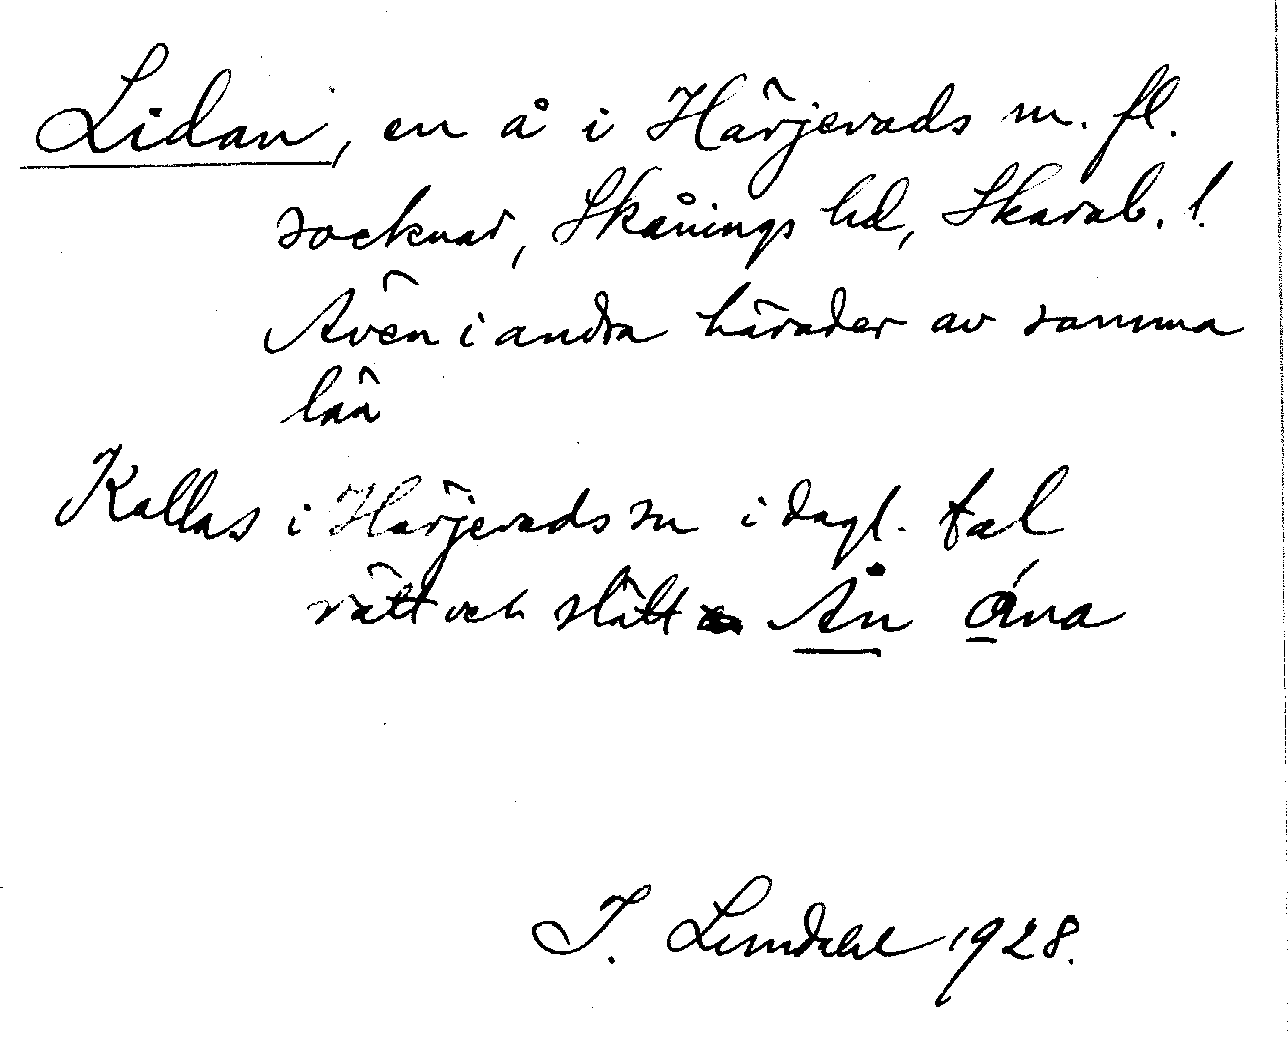 Lidan, en å i Härjevads m. fl.
socknar, Skånings hd, Skarab. l.
Även i andra härader av samma
län
Kallas i Härjevads sn i dagl. tal
rätt och slätt Ån åna
J. Lundahl 1928.